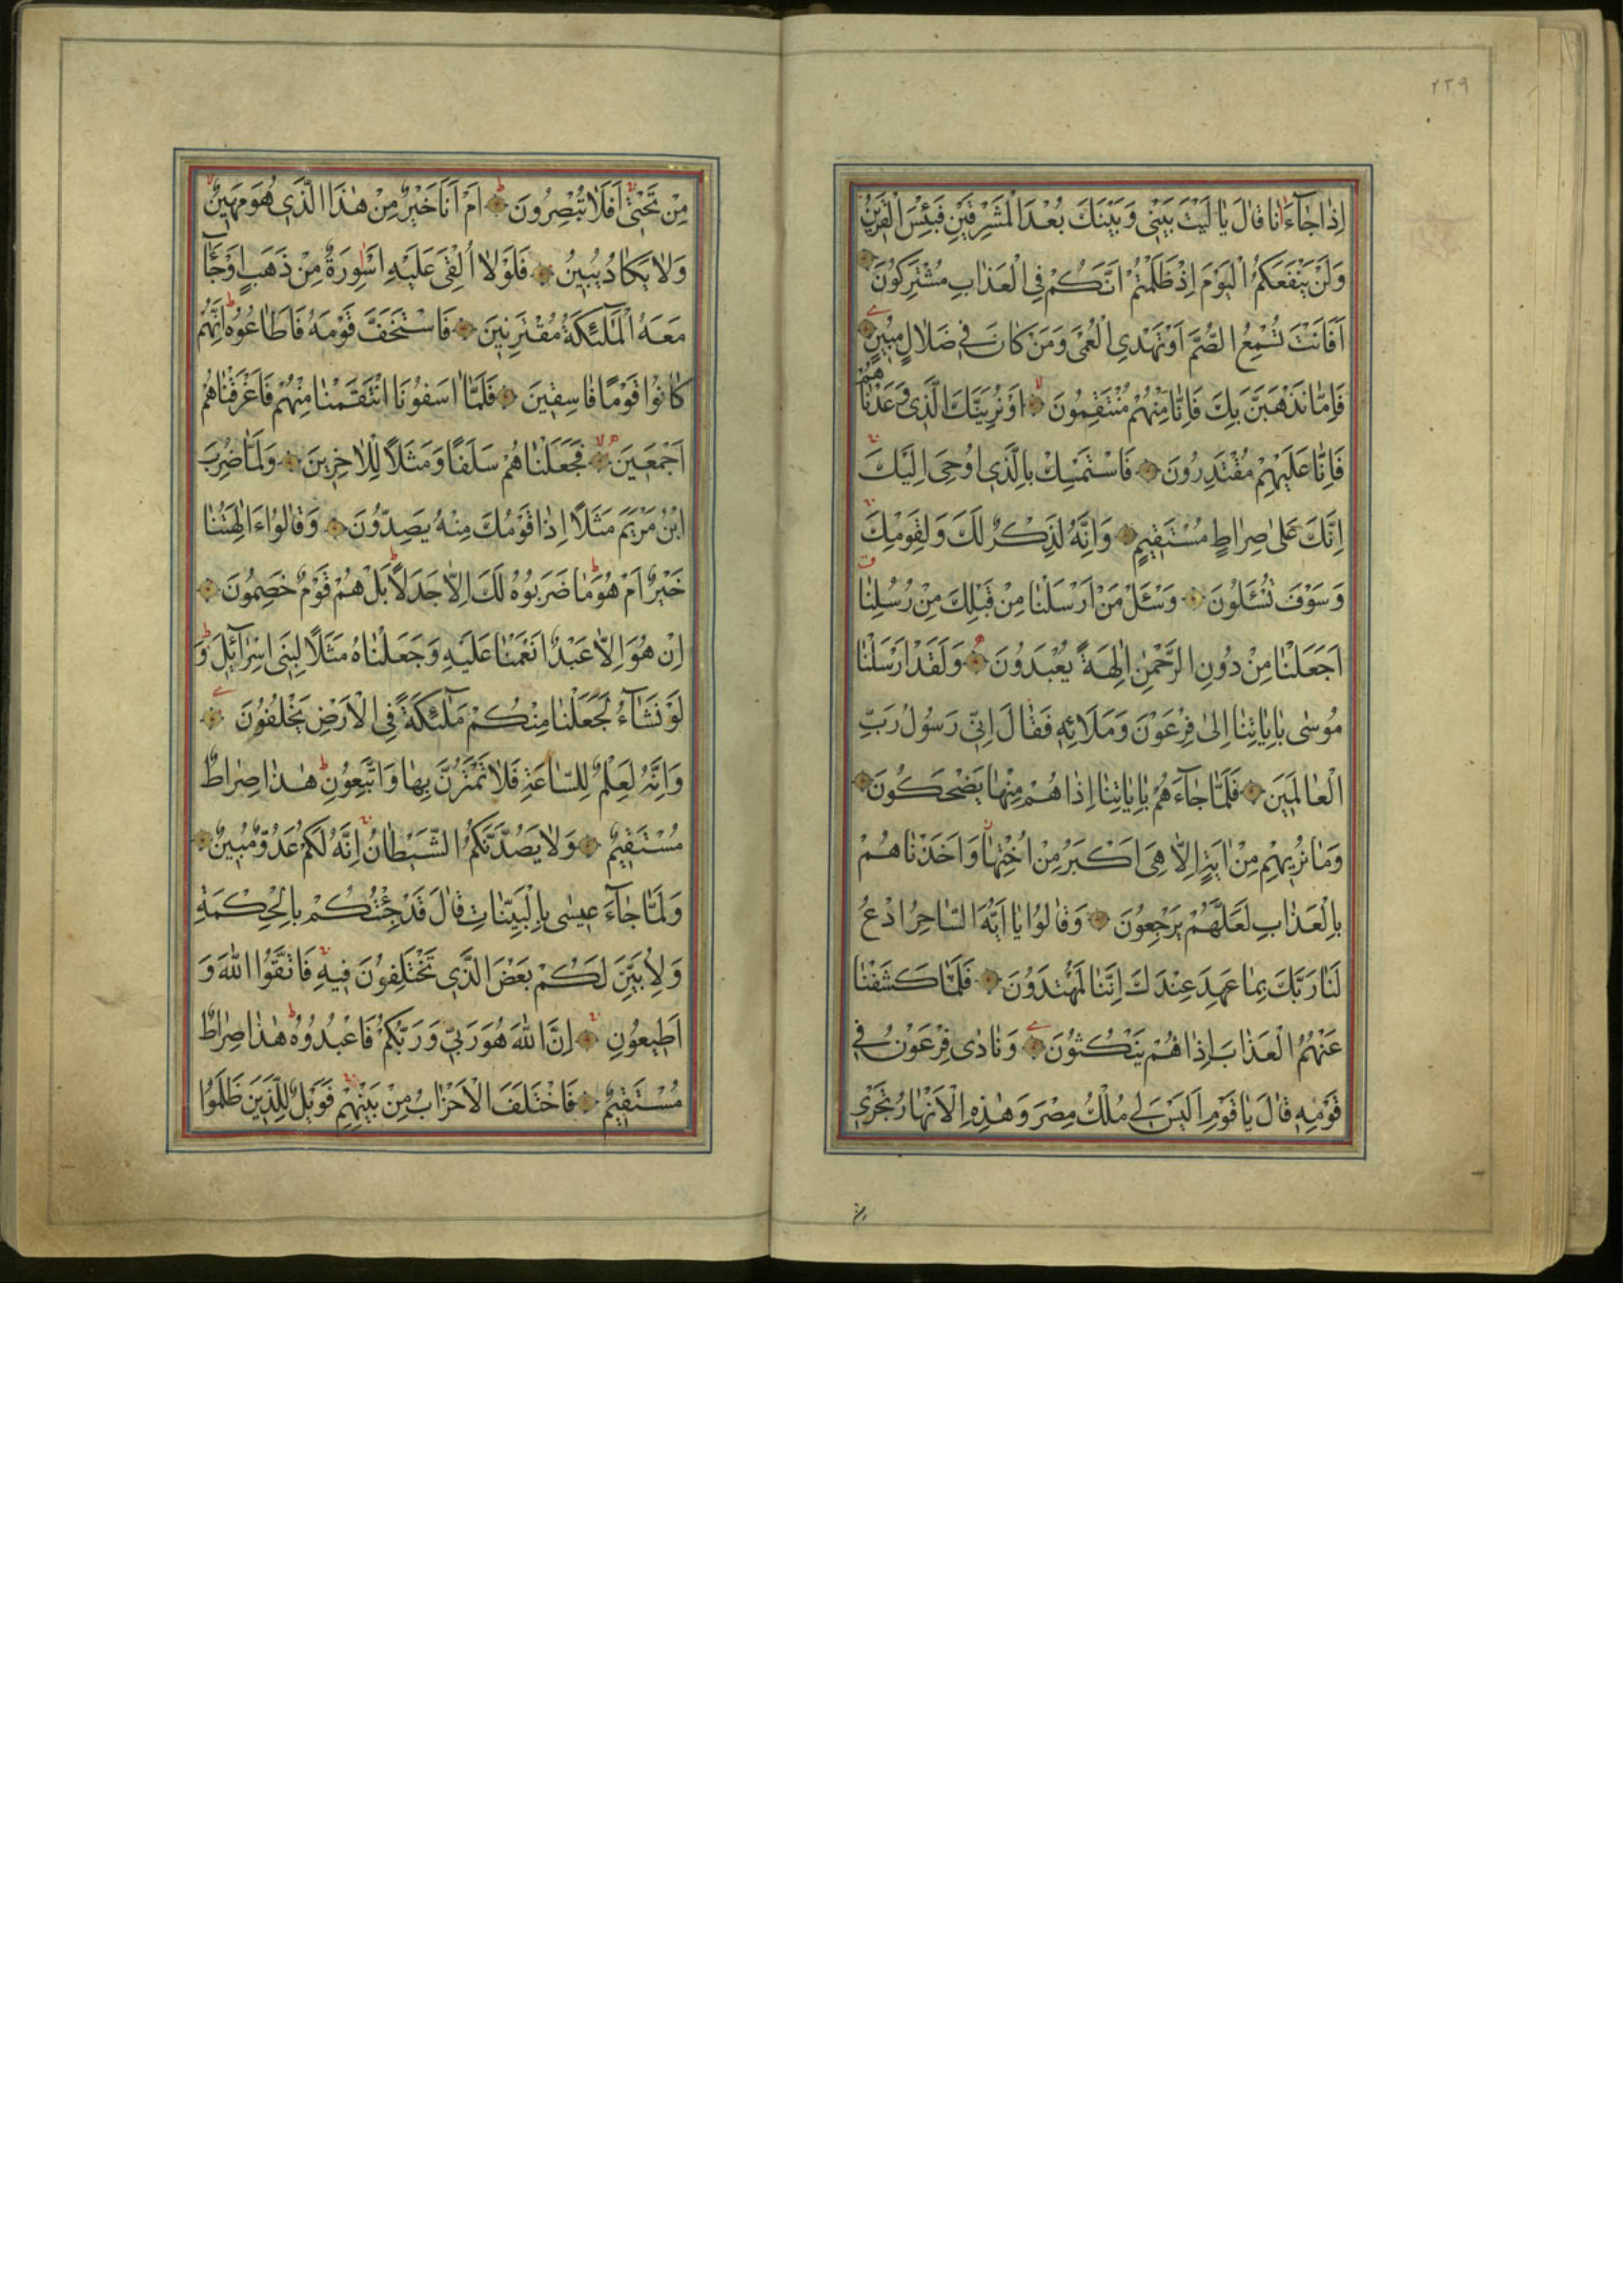 ٢٣٩
اِذَا جَآءَنَا قَالَ يَا لَيْتَ بَيْنِى وَبَيْنَكَ بُعْدَ الْمَشْرِقَيْنِ فَبِئْسَ الْقَرِينُ
وَلَنْ يَنْفَعَكُمُ الْيَوْمَ اِذْ ظَلَمْتُمْ اَنَّكُمْ فِى الْعَذَابِ مُشْتَرِكُونَ
اَفَاَنْتَ تُسْمِعُ الصُّمَّ اَوْ تَهْدِى الْعُمْىَ وَمَنْ كَانَ فِى ضَلَالٍ مُبِينٍ
فَاِمَّا نَذْهَبَنَّ بِكَ فَاِنَّا مِنْهُمْ مُنْتَقِمُونَ اَوْ نُرِيَنَّكَ الَّذِى وَعَدْنَاهُمْ
فَاِنَّا عَلَيْهِمْ مُقْتَدِرُونَ فَاسْتَمْسِكْ بِالَّذِى اُوحِىَ اِلَيْكَ
اِنَّكَ عَلٰى صِرَاطٍ مُسْتَقِيمٍ وَاِنَّهُ لَذِكْرٌ لَكَ وَلِقَوْمِكَ
وَسَوْفَ تُسْئَلُونَ وَسْئَلْ مَنْ اَرْسَلْنَا مِنْ قَبْلِكَ مِنْ رُسُلِنَا
اَجَعَلْنَا مِنْ دُونِ الرَّحْمٰنِ اٰلِهَةً يُعْبَدُونَ وَلَقَدْ اَرْسَلْنَا
مُوسٰى بِاٰيَاتِنَا اِلٰى فِرْعَوْنَ وَمَلَائِهِ فَقَالَ اِنِّى رَسُولُ رَبِّ
الْعَالَمِينَ فَلَمَّا جَآءَهُمْ بِاٰيَاتِنَا اِذَا هُمْ مِنْهَا يَضْحَكُونَ
وَمَا نُرِيهِمْ مِنْ اٰيَةٍ اِلَّا هِىَ اَكْبَرُ مِنْ اُخْتِهَا وَاَخَذْنَاهُمْ
بِالْعَذَابِ لَعَلَّهُمْ يَرْجِعُونَ وَقَالُوا يَا اَيُّهَ السَّاحِرُ ادْعُ
لَنَا رَبَّكَ بِمَا عَهِدَ عِنْدَكَ اِنَّنَا لَمُهْتَدُونَ فَلَمَّا كَشَفْنَا
عَنْهُمُ الْعَذَابَ اِذَا هُمْ يَنْكُثُونَ وَنَادٰى فِرْعَوْنُ فِى
قَوْمِهِ قَالَ يَا قَوْمِ اَلَيْسَ لِى مُلْكُ مِصْرَ وَهٰذِهِ الْاَنْهَارُ تَجْرِى
من
مِنْ تَحْتِى اَفَلَا تُبْصِرُونَ اَمْ اَنَا خَيْرٌ مِنْ هٰذَا الَّذِى هُوَ مَهِينٌ
وَلَا يَكَادُ يُبِينُ فَلَوْلَا اُلْقِىَ عَلَيْهِ اَسْوِرَةٌ مِنْ ذَهَبٍ اَوْ جَآءَ
مَعَهُ الْمَلٰٓئِكَةُ مُقْتَرِنِينَ فَاسْتَخَفَّ قَوْمَهُ فَاَطَاعُوهُ اِنَّهُمْ
كَانُوا قَوْمًا فَاسِقِينَ فَلَمَّا اٰسَفُونَا انْتَقَمْنَا مِنْهُمْ فَاَغْرَقْنَاهُمْ
اَجْمَعِينَ فَجَعَلْنَاهُمْ سَلَفًا وَمَثَلًا لِلْاٰخِرِينَ وَلَمَّا ضُرِبَ
ابْنُ مَرْيَمَ مَثَلًا اِذَا قَوْمُكَ مِنْهُ يَصِدُّونَ وَقَالُوا ءَاٰلِهَتُنَا
خَيْرٌ اَمْ هُوَ مَا ضَرَبُوهُ لَكَ اِلَّا جَدَلًا بَلْ هُمْ قَوْمٌ خَصِمُونَ
اِنْ هُوَ اِلَّا عَبْدٌ اَنْعَمْنَا عَلَيْهِ وَجَعَلْنَاهُ مَثَلًا لِبَنِى اِسْرَآئِيلَ وَ
لَوْ نَشَآءُ لَجَعَلْنَا مِنْكُمْ مَلٰٓئِكَةً فِى الْاَرْضِ يَخْلُفُونَ
وَاِنَّهُ لَعِلْمٌ لِلسَّاعَةِ فَلَا تَمْتَرُنَّ بِهَا وَاتَّبِعُونِ هٰذَا صِرَاطٌ
مُسْتَقِيمٌ وَلَا يَصُدَّنَّكُمُ الشَّيْطَانُ اِنَّهُ لَكُمْ عَدُوٌّ مُبِينٌ
وَلَمَّا جَآءَ عِيسٰى بِالْبَيِّنَاتِ قَالَ قَدْ جِئْتُكُمْ بِالْحِكْمَةِ
وَلِاُبَيِّنَ لَكُمْ بَعْضَ الَّذِى تَخْتَلِفُونَ فِيهِ فَاتَّقُوا اللّٰهَ وَ
اَطِيعُونِ اِنَّ اللّٰهَ هُوَ رَبِّى وَرَبُّكُمْ فَاعْبُدُوهُ هٰذَا صِرَاطٌ
مُسْتَقِيمٌ فَاخْتَلَفَ الْاَحْزَابُ مِنْ بَيْنِهِمْ فَوَيْلٌ لِلَّذِينَ ظَلَمُوا